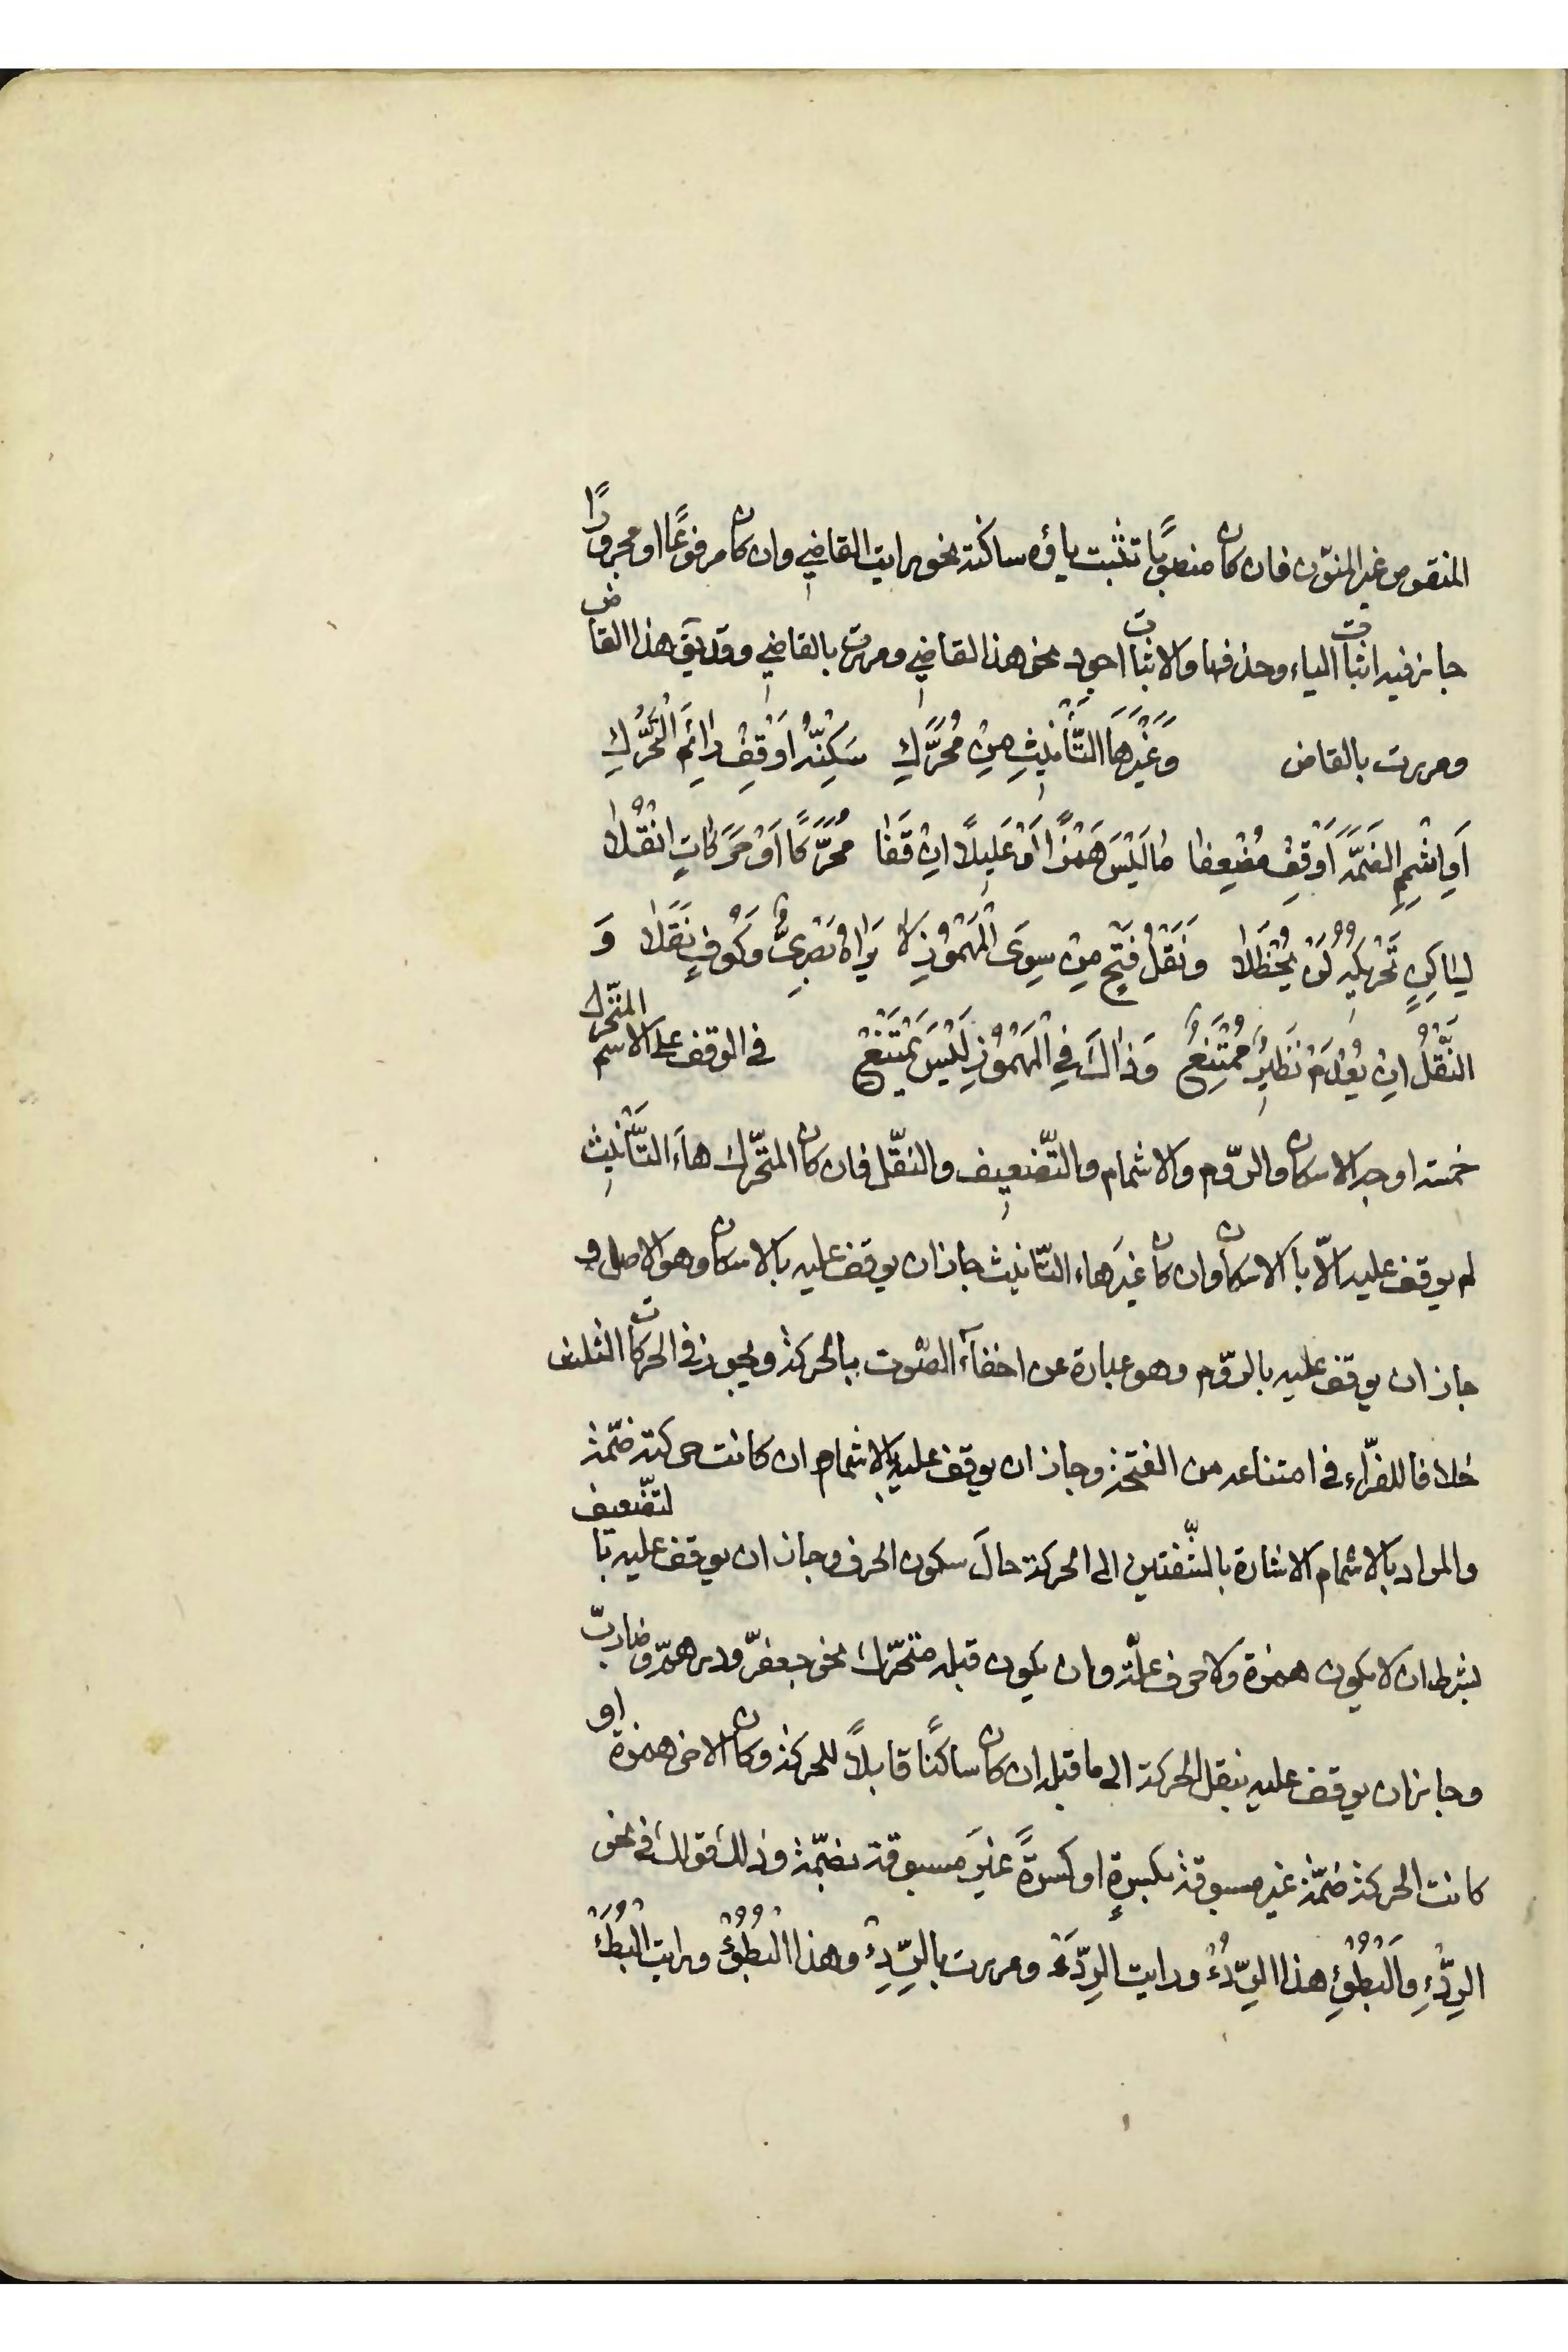 المنقوص غير المنوّن فان كان منصوبًا تثبت ياؤه ساكنة نحو رايت القاضي وان كان مرفوعًا او مجرورًا
جاز فيه اثبات الياء وحذفها والاثبات اجود نحو هذا القاضي ومررت بالقاضي وقد يق هذا القاض
ومررت بالقاض وَغَيْرَهَا التَّأْنِيثِ مِنْ مُحَرَّكٍ سَكِّنْهُ اَوْ قِفْ رَائِمَ التَّحَرُّكِ
اَوِ اشْمِمِ الضَّمَّةَ اَوْ قِفْ مُضْعِفا مَا لَيْسَ هَمْزًا اَوْ عَلِيلًا اِنْ قَفَا مُحَرَّكًا اَوْ حَرَكَاتٍ انْقُلا
لِسَاكِنٍ تَحْرِيكُهُ لَنْ يُحْظَلا وَنَقْلُ فَتْحٍ مِنْ سِوَى الْمَهْمُوزِ لا يَرَاهُ بَصْرِيٌّ وَكُوفٍ نَقَلا وَ
النَّقْلُ اِنْ يُعْدَمْ نَظِيرٌ مُمْتَنِعْ وَذَاكَ فِي الْمَهْمُوزِ لَيْسَ يَمْتَنِعْ في الوقف على الاسم المتحرّك
خمسة اوجه الاسكان والرّوم والاشمام والتّضعيف والنّقل فان كان المتحرّك هاءَ التَّأْنِيثِ
لم يوقف عليه الّا بالاسكان وان كان غيرَ هاء التّانيث جاز ان يوقف عليه بالاسكان وهو الاصل و
جاز ان يوقف عليه بالرّوم وهو عبارة عن اخفاء الصّوت بالحركة ويجوز في الحركات الثلث
خلافا للفرّاء في امتناعه من الفتحة وجاز ان يوقف عليه بالاشمام ان كانت حركته ضمّة
والمراد بالاشمام الاشارة بالشّفتين الى الحركة حالَ سكون الحرف وجاز ان يوقف عليه بالتّضعيف
بشرط ان لا يكون همزة ولا حرف علّة وان يكون قبله متحرّك نحو جعفرّ ودرهمّ وضاربّ
وجاز ان يوقف عليه بنقل الحركة الى ما قبله ان كان ساكنًا قابلًا للحركة وكان الاخر همزة او
كانت الحركة ضمّة غير مسبوقة بكسرةٍ او كسرةً غيرَ مسبوقة بضمّة وذلك قولك في نحو
الرِدْءِ وَالْبُطْؤِ هذا الرِّدُءْ ورايت الرِّدَءْ ومررت بالرِّدِءْ وهذا الْبُطُؤْ ورايت الْبُطَءْ